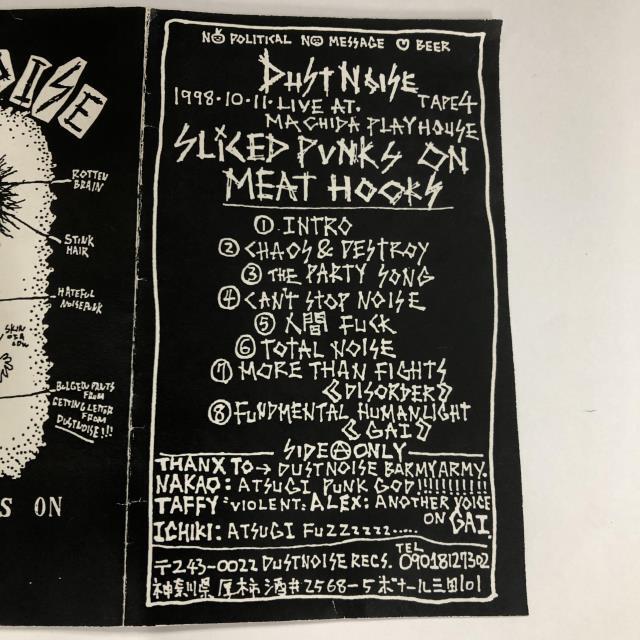 OISE
ROTTEN
BRAIN
STINK
HAIR
HATEFUL
NOISEPUNK
SKIN
OF A
BULGED PANTS
FROM
GETTING LETTER
FROM
DUSTNOISE!!!
S ON
NO POLITICAL NO MESSAGE ♡ BEER
DUST NOISE
1998・10・11・LIVE AT. TAPE4
MACHIDA PLAYHOUSE
SLICED PUNKS ON
MEAT HOOKS
① INTRO
② CHAOS & DESTROY
③ THE PARTY SONG
④ CAN'T STOP NOISE
⑤ 人間 FUCK
⑥ TOTAL NOISE
⑦ MORE THAN FIGHTS
《DISORDER》
⑧ FUNDMENTAL HUMANLIGHT
《GAI》
SIDE Ⓐ ONLY
THANX TO → DUSTNOISE BARMY ARMY.
NAKAO: ATSUGI PUNK GOD!!!!!!!!!!
TAFFY "VIOLENT": ALEX: ANOTHER VOICE
ON GAI.
ICHIKI: ATSUGI FUZZZZZZ.....
〒243-0022 DUSTNOISE RECS. TEL 09018127302
神奈川県 厚木市 酒井 2568-5 ボナール三田101